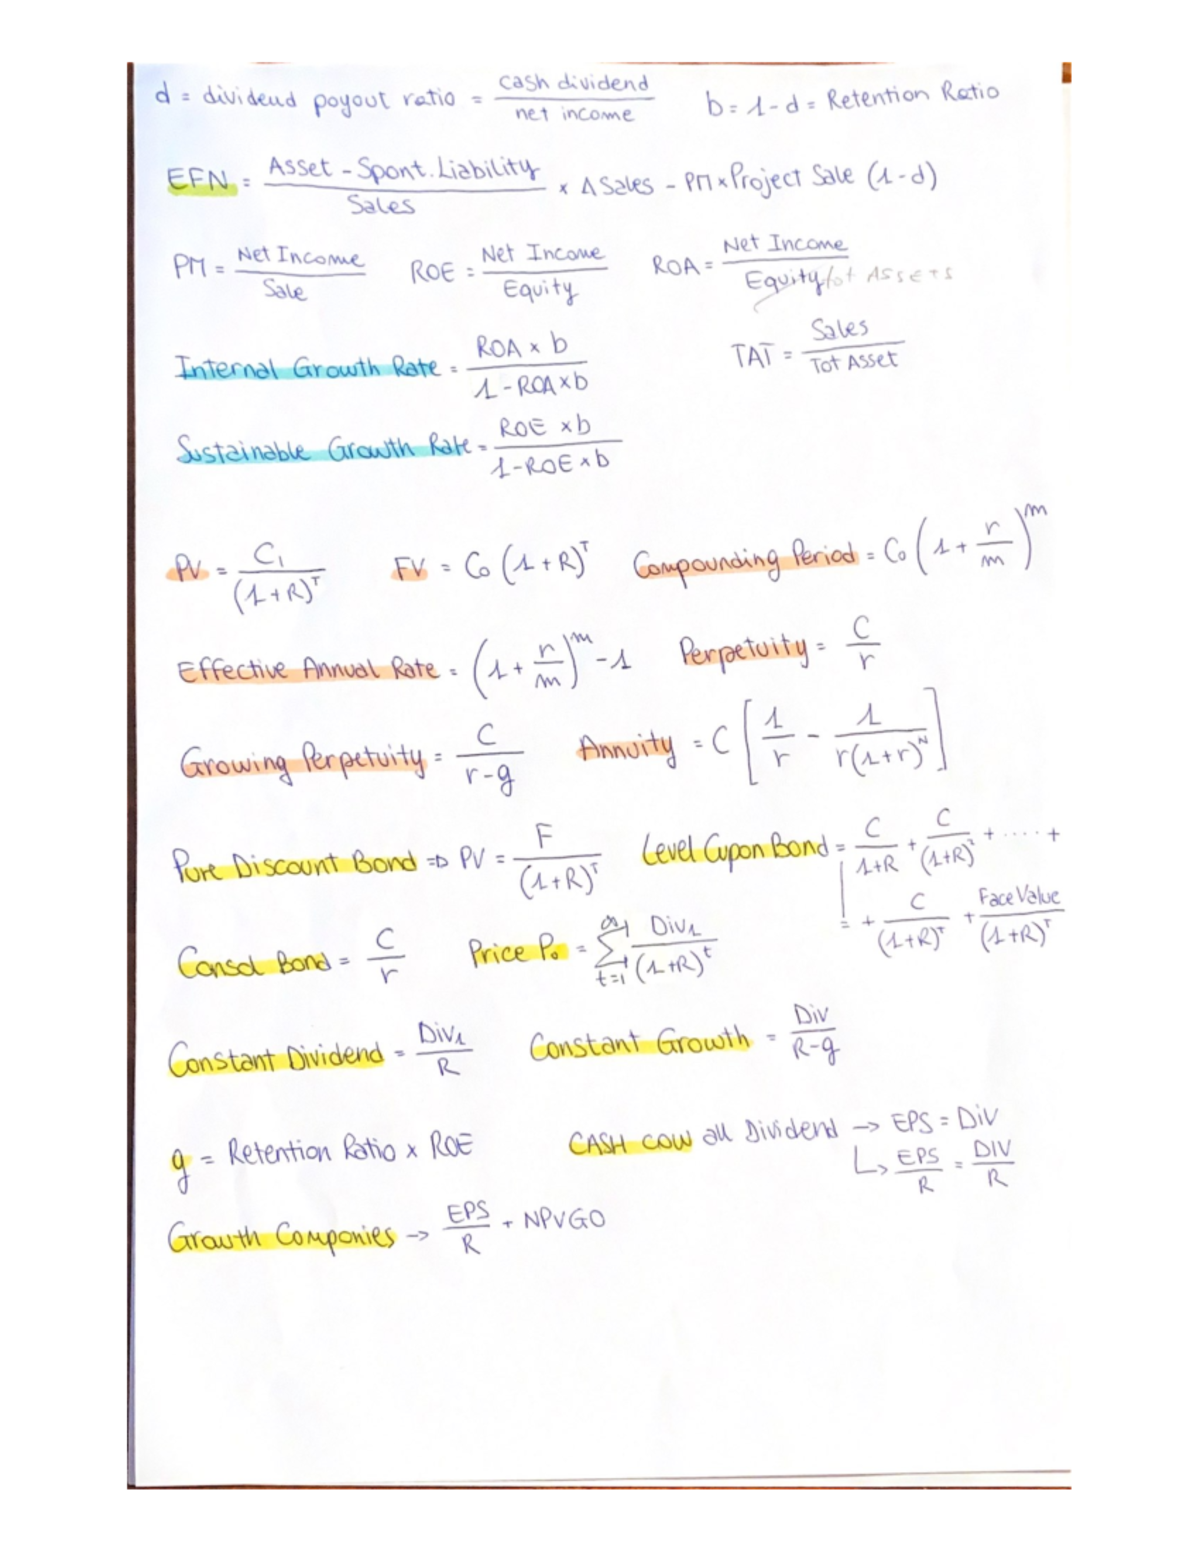 d = dividend payout ratio = cash dividend / net income    b = 1 - d = Retention Ratio
EFN = (Asset - Spont. Liability) / Sales × Δ Sales - PM × Project Sale (1 - d)
PM = Net Income / Sale    ROE = Net Income / Equity    ROA = Net Income / Equity tot ASSETS
Internal Growth Rate = ROA × b / 1 - ROA × b    TAT = Sales / Tot Asset
Sustainable Growth Rate = ROE × b / 1 - ROE × b
PV = C₁ / (1 + R)ᵀ    FV = C₀ (1 + R)ᵀ    Compounding Period = C₀ (1 + r/m)ᵐ
Effective Annual Rate = (1 + r/m)ᵐ - 1    Perpetuity = C / r
Growing Perpetuity = C / r - g    Annuity = C [1/r - 1 / r(1 + r)ᴺ]
Pure Discount Bond ⇒ PV = F / (1 + R)ᵀ    Level Cupon Bond = C / 1 + R + C / (1 + R)² + ..... +
= + C / (1 + R)ᵀ + Face Value / (1 + R)ᵀ
Consol Bond = C / r    Price P₀ = Σ t=1 Div₁ / (1 + R)ᵗ
Constant Dividend = Div₁ / R    Constant Growth = Div / R - g
g = Retention Ratio × ROE    CASH COW all Dividend → EPS = Div
↳ EPS / R = DIV / R
Growth Companies → EPS / R + NPVGO